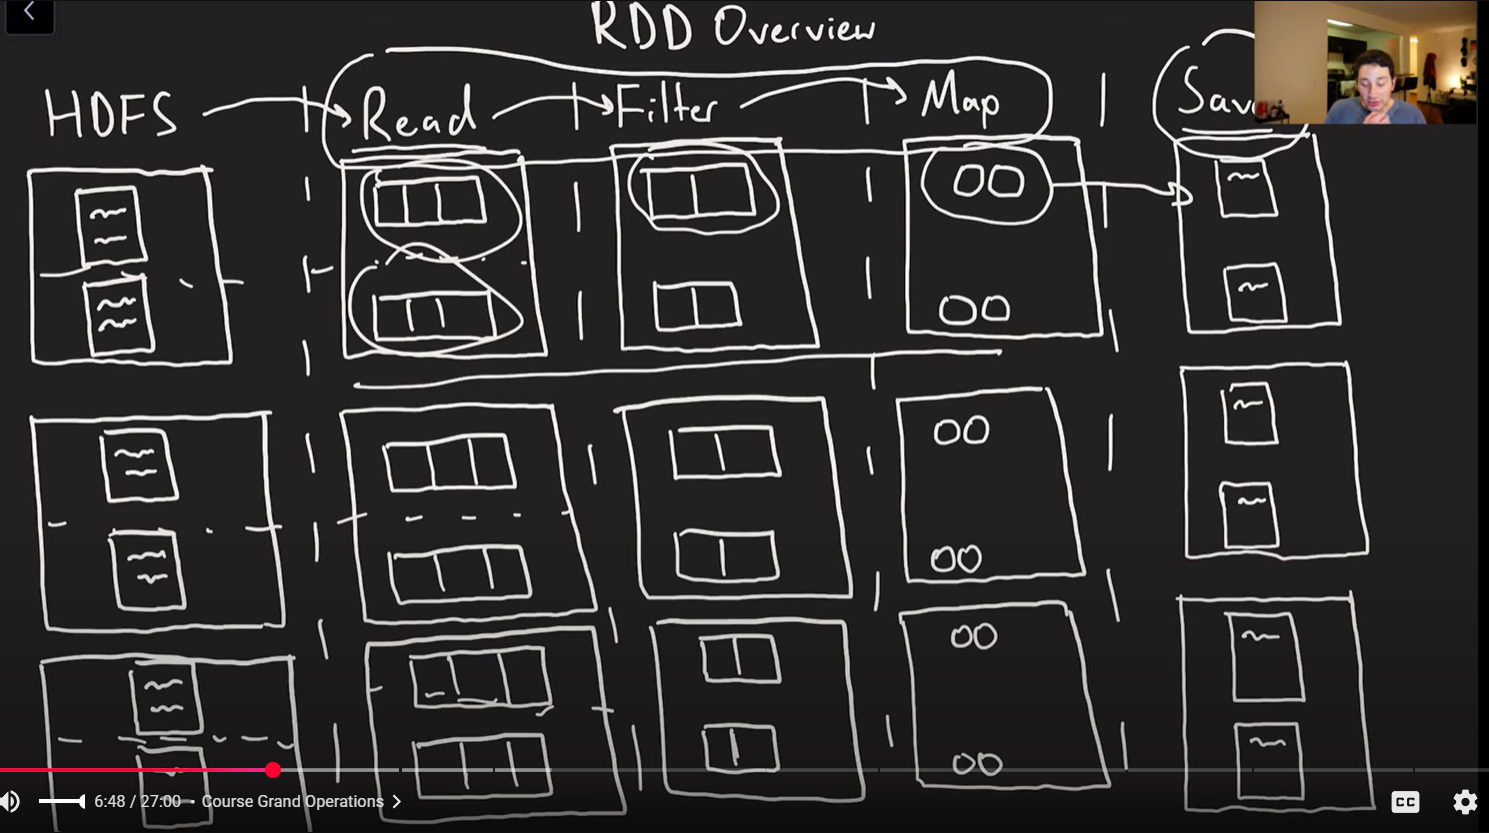 RDD Overview
HDFS Read Filter Map Sav
OO
OO
OO
OO
OO
OO
6:48 / 27:00 • Course Grand Operations
CC